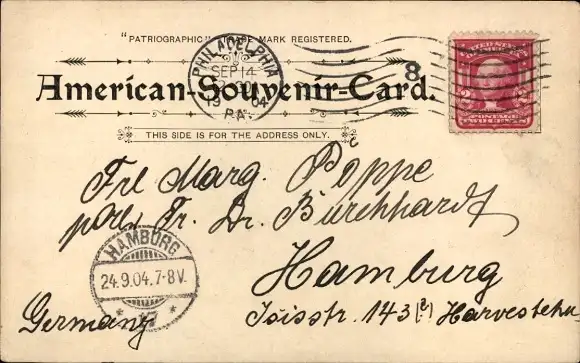 "PATRIOGRAPHIC" TRADE MARK REGISTERED.
PHILADELPHIA
SEP 14
1904
PA.
8
UNITED STATES
POSTAGE
TWO CENTS
American-Souvenir-Card.
THIS SIDE IS FOR THE ADDRESS ONLY.
Frl Marg. Poppe
Fr. Dr. Burchhardt
Hamburg
Isisstr. 143 (?) Harvestehu
Germany
HAMBURG
24.9.04.7-8V.
* 17 *